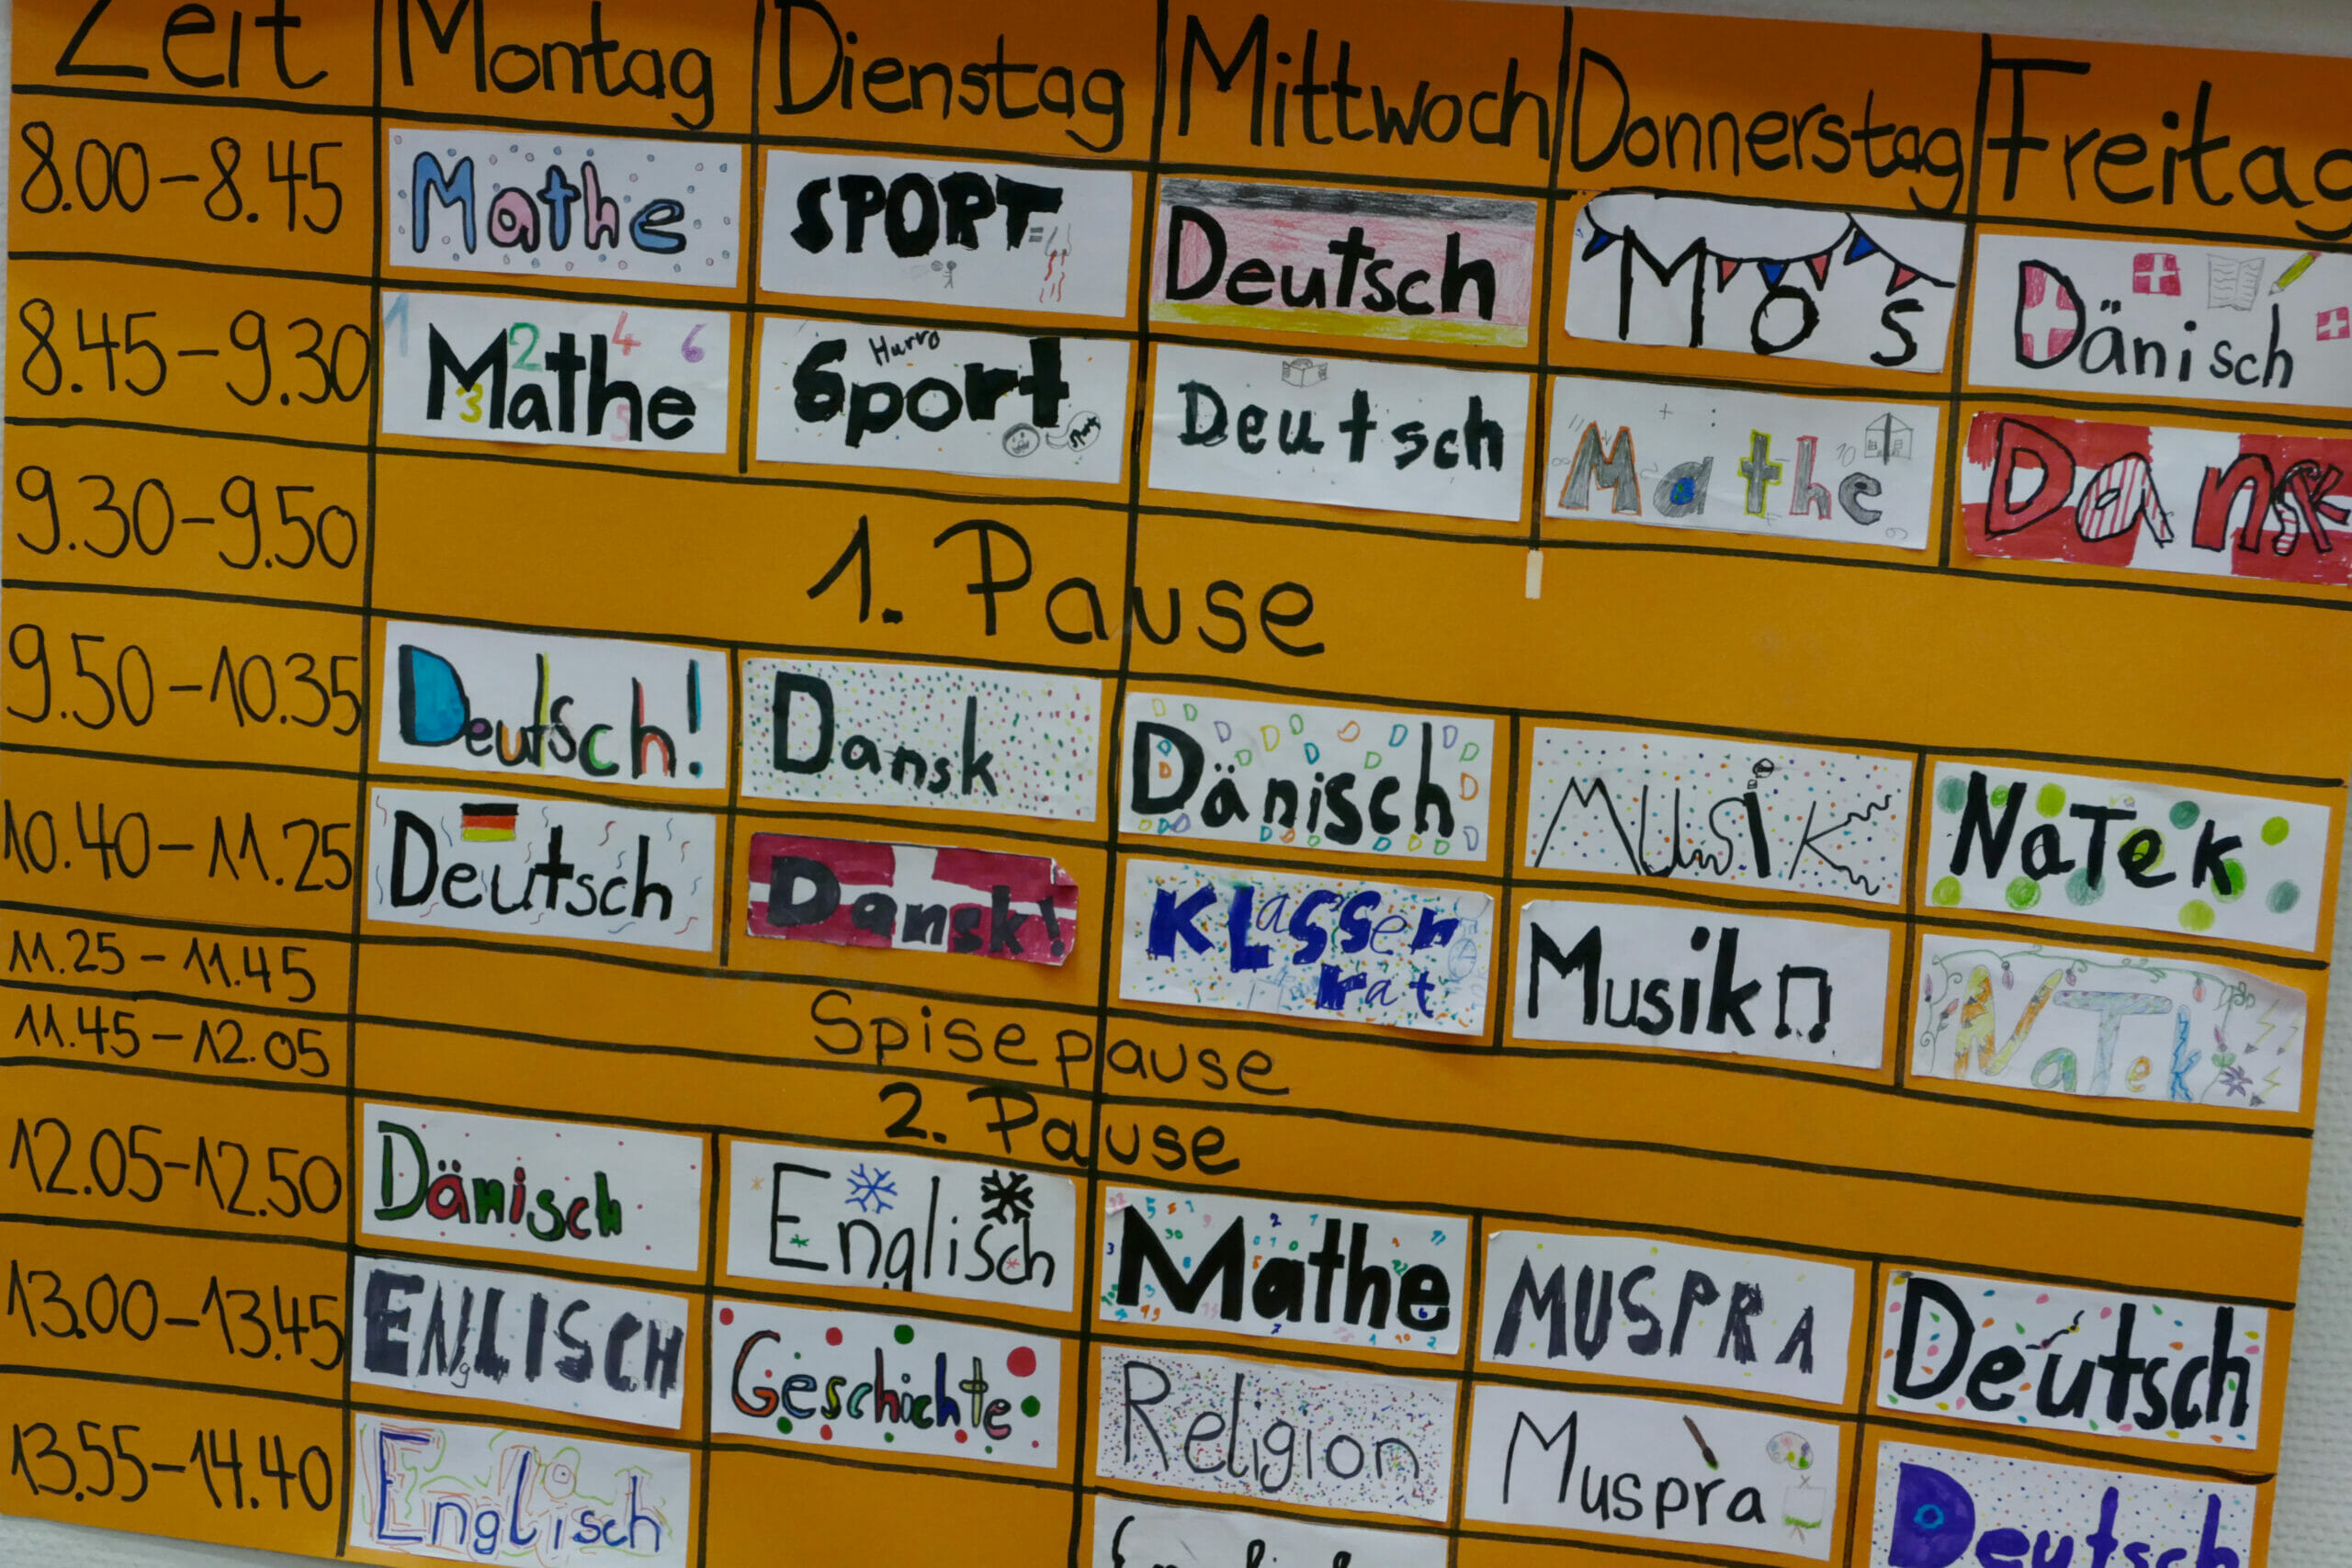 Zeit Montag Dienstag Mittwoch Donnerstag Freitag
8.00-8.45 Mathe SPORT Deutsch MOS Dänisch
8.45-9.30 Mathe Sport Hurra Deutsch Mathe Dansk
9.30-9.50 1. Pause
9.50-10.35 Deutsch! Dansk Dänisch MUSIK NaTek
10.40-11.25 Deutsch Dansk! KLassen rat Musik NaTek
11.25-11.45 Spisepause
11.45-12.05 2. Pause
12.05-12.50 Dänisch Englisch Mathe MUSPRA Deutsch
13.00-13.45 ENgLISCH Geschichte Religion Muspra Deutsch
13.55-14.40 Englisch